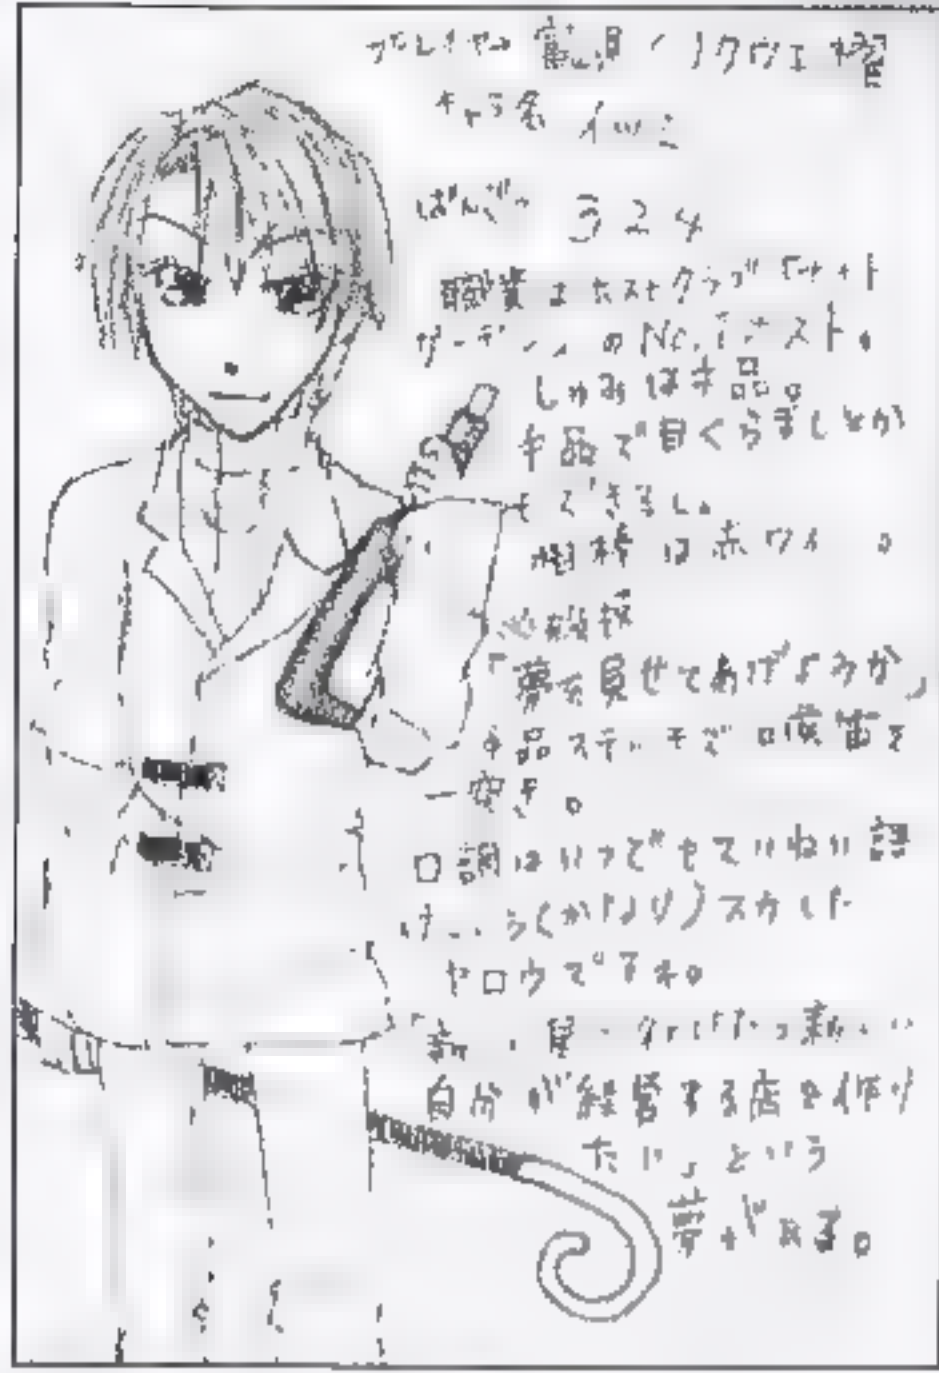 プレイヤー
キャラ名 イツミ
ばんごう 324
職業はホストクラブ
ガーデン」のNo.1ホスト。
しゅみは手品。
手品で目くらましとか
もできるし。
相棒は赤ワイ 。
必殺技
「夢を見せてあげようか」
手品ステッキで喉笛を
一突き。
口調はいつでもていねい語
(かなり)スカした
ヤロウですね。
自分が経営する店を作り
たい」という
夢がある。